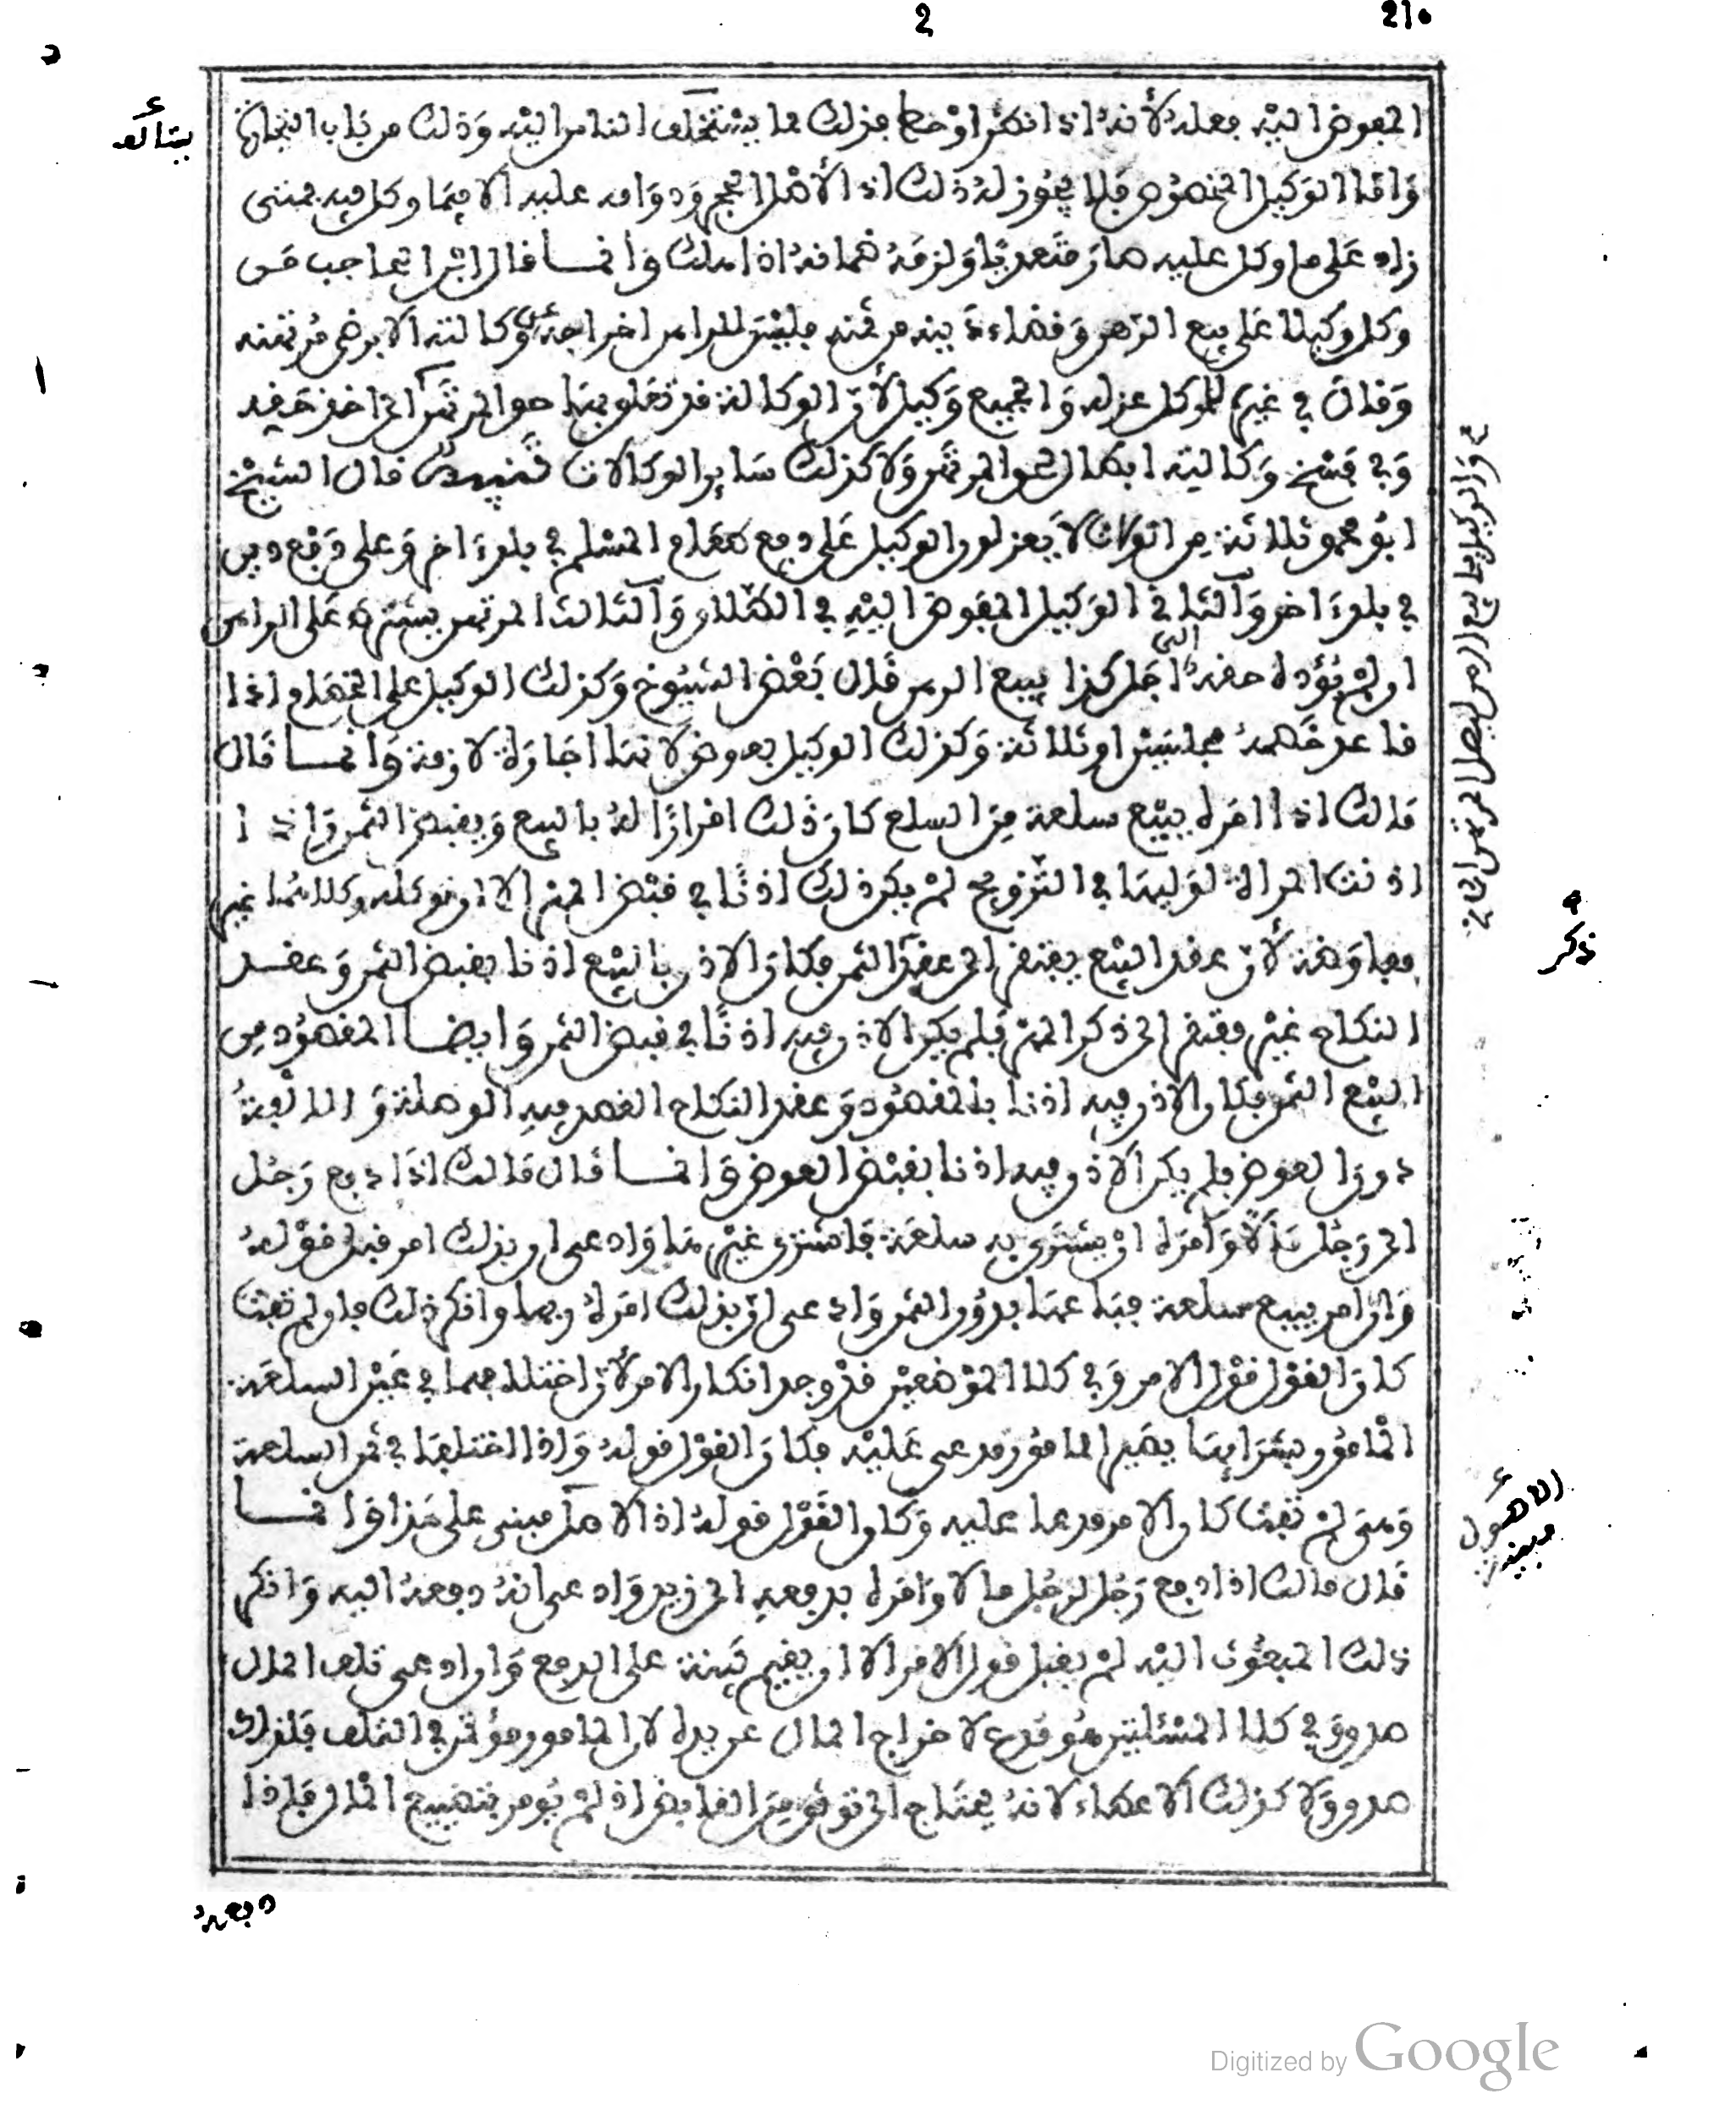 210
2
المفوض اليه فعله لأنه اذا انظر او حط فذلك مما يستخلف الناس اليه وذلك من باب التجارة
يستألف
واما الوكيل المخصوص فلا يجوز له ذلك اذ الأصل الحجر ودوامه عليه الا فيما وكل فيه فمتى
زاد على ما وكل عليه صار متعديا ولزمه ضمانه اذا هلك وانما قال ابن الحاجب من
وكل وكيلا على بيع الرهن وقضاء دينه من ثمنه فليس للراهن اخراجه عن وكالته الا برضى مرتهنه
وقال في غيره للموكل عزله والجميع وكيل لأن الوكالة قد تعلق بها حق المرتهن الى اخذ حقه
وفي فسخ وكالته ابطال لحق المرتهن ولا كذلك ساير الوكالات تنبيه قال الشيخ
ابو محمد ثلاثة من الوكلاء لا يعزلون الوكيل على دفع طعام المسلم في بلد اخر وعلى دفع دين
في بلد اخر والثاني الوكيل المفوض اليه في الطلاق والثالث المرتهن يشترط على الراهن
ان لم يؤده حقه الى اجل كذا يبيع الرهن قال بعض الشيوخ وكذلك الوكيل على الخصام اذا
قاعد خصمه مجلسين او ثلاثة وكذلك الوكيل بعوض لانها اجارة لازمة وانما قال
مالك اذا امره ببيع سلعة من السلع كان ذلك اقرارا له بالبيع وبقبض الثمن واذا
اذنت المراة لوليها في التزويج لم يكن ذلك اذنا في قبض المهر الا ان توكله وكلاهما غير
معاوضة لأن عقد البيع يفتقر الى عقد الثمن فكان الاذن بالبيع اذنا بقبض الثمن وعقد
ذكر
النكاح غير مفتقر الى ذكر المهر فلم يكن الاذن فيه اذنا في قبض الثمن وايضا المقصود من
البيع الثمن فكان الاذن فيه اذنا بالمقصود وعقد النكاح القصد فيه الوصلة والالفة
دون العوض فلم يكن الاذن فيه اذنا بقبض العوض وانما قال مالك اذا دفع رجل
الى رجل مالا وامره ان يشتري به سلعة فاشترى غيرها وادعى ان بذلك امر قبل قوله
وان امر ببيع سلعة فباعها بدون الثمن وادعى ان بذلك امره ربها وانكر ذلك فان لم تفت
كان القول قول الامر وفي كلا الموضعين قد وجد انكار الامر لأن اختلافهما في غير السلعة
المامور بشرائها يصير المامور مدعى عليه فكان القول قوله واذا اختلفا في ثمن السلعة
ومتى لم تفت كان الامر مدعا عليه وكان القول قوله اذ الاصل مبني على هذا وانما
الاصول مبنية
قال مالك اذا دفع رجل لرجل مالا وامره بدفعه الى زيد وادعى انه دفعه اليه وانكر
ذلك المبعوث اليه لم يقبل قول الامر الا ان يقيم بينة على الدفع وان ادعى تلف المال
صدق وفي كلا المسئلتين هو مدع لاخراج المال عن يده لان المامور مؤتمن في التلف فلذلك
صدق ولا كذلك الاعطاء لانه يحتاج الى توثق من القابض اذ لم يومر بتضييع المال فاذا
دفعه